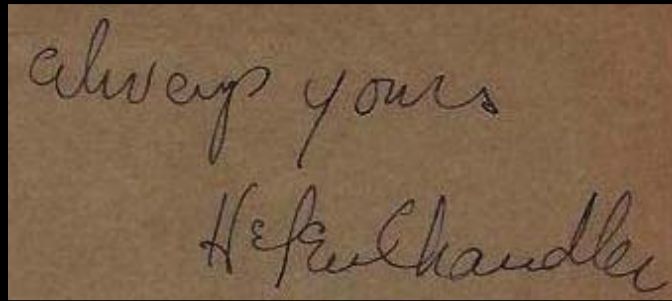 always yours
Helen Chandler